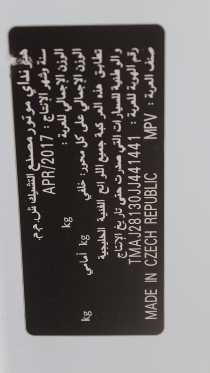 هيونداي موتور مصنع التشيك ش.م.م.
سنة وشهر الإنتاج : APR/2017
الوزن الإجمالي للعربة : kg
الوزن الإجمالي على كل محور: خلفي kg أمامي kg
تطابق هذه المركبة جميع اللوائح الفنية الخليجية
والوطنية للسيارات التي صدرت حتى تاريخ الإنتاج
رقم الهوية للعربة : TMAJ28130JJ441441
صنف العربة : MPV
MADE IN CZECH REPUBLIC